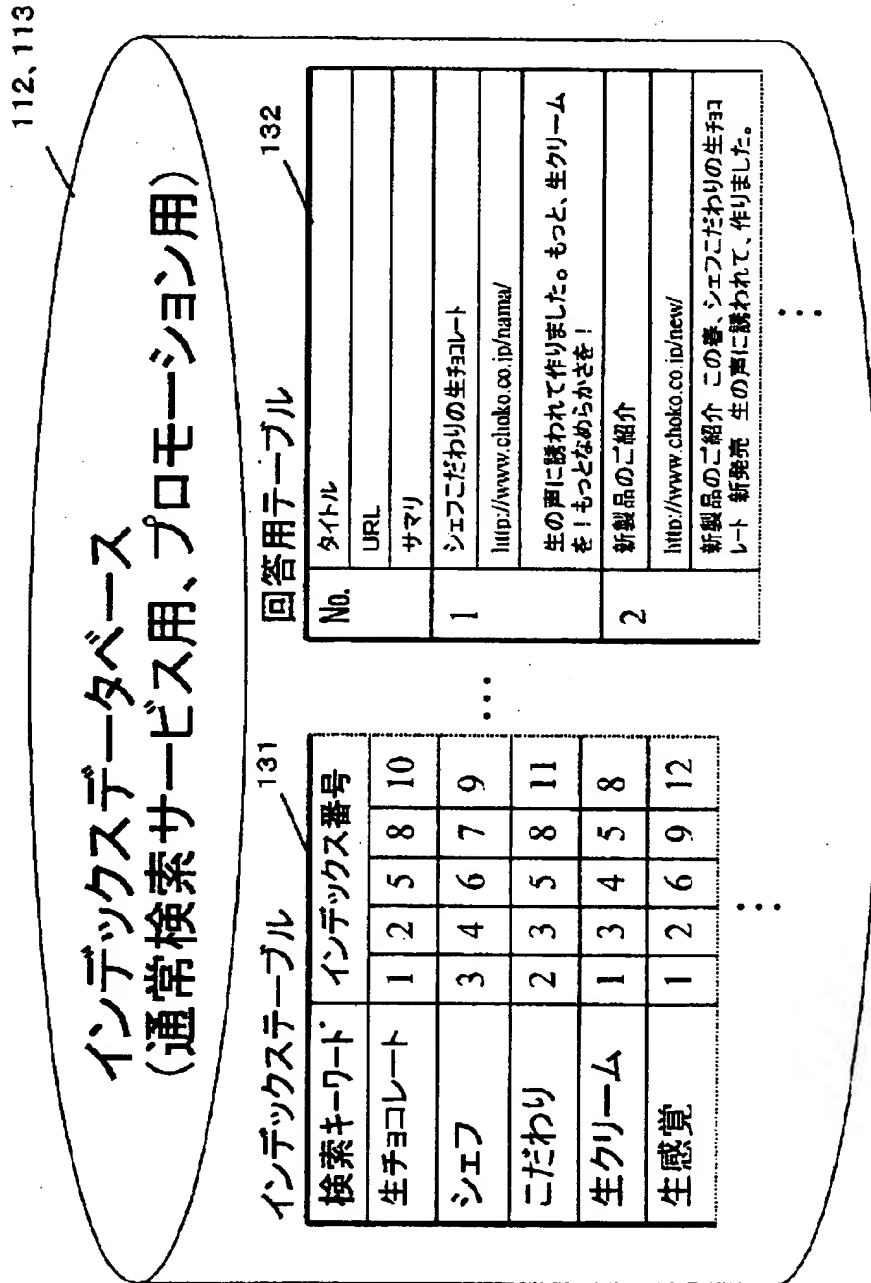 112、113
インデックスデータベース
(通常検索サービス用、プロモーション用)
インデックステーブル
131
検索キーワード インデックス番号
生チョコレート 1 2 5 8 10
シェフ 3 4 6 7 9
こだわり 2 3 5 8 11
生クリーム 1 3 4 5 8
生感覚 1 2 6 9 12
⋮
…
回答用テーブル
132
No. タイトル
URL
サマリ
1 シェフこだわりの生チョコレート
http://www.choko.co.jp/nama/
生の声に誘われて作りました。もっと、生クリーム
を！もっとなめらかさを！
2 新製品のご紹介
http://www.choko.co.jp/new/
新製品のご紹介 この春、シェフこだわりの生チョコ
レート 新発売 生の声に誘われて、作りました。
⋮